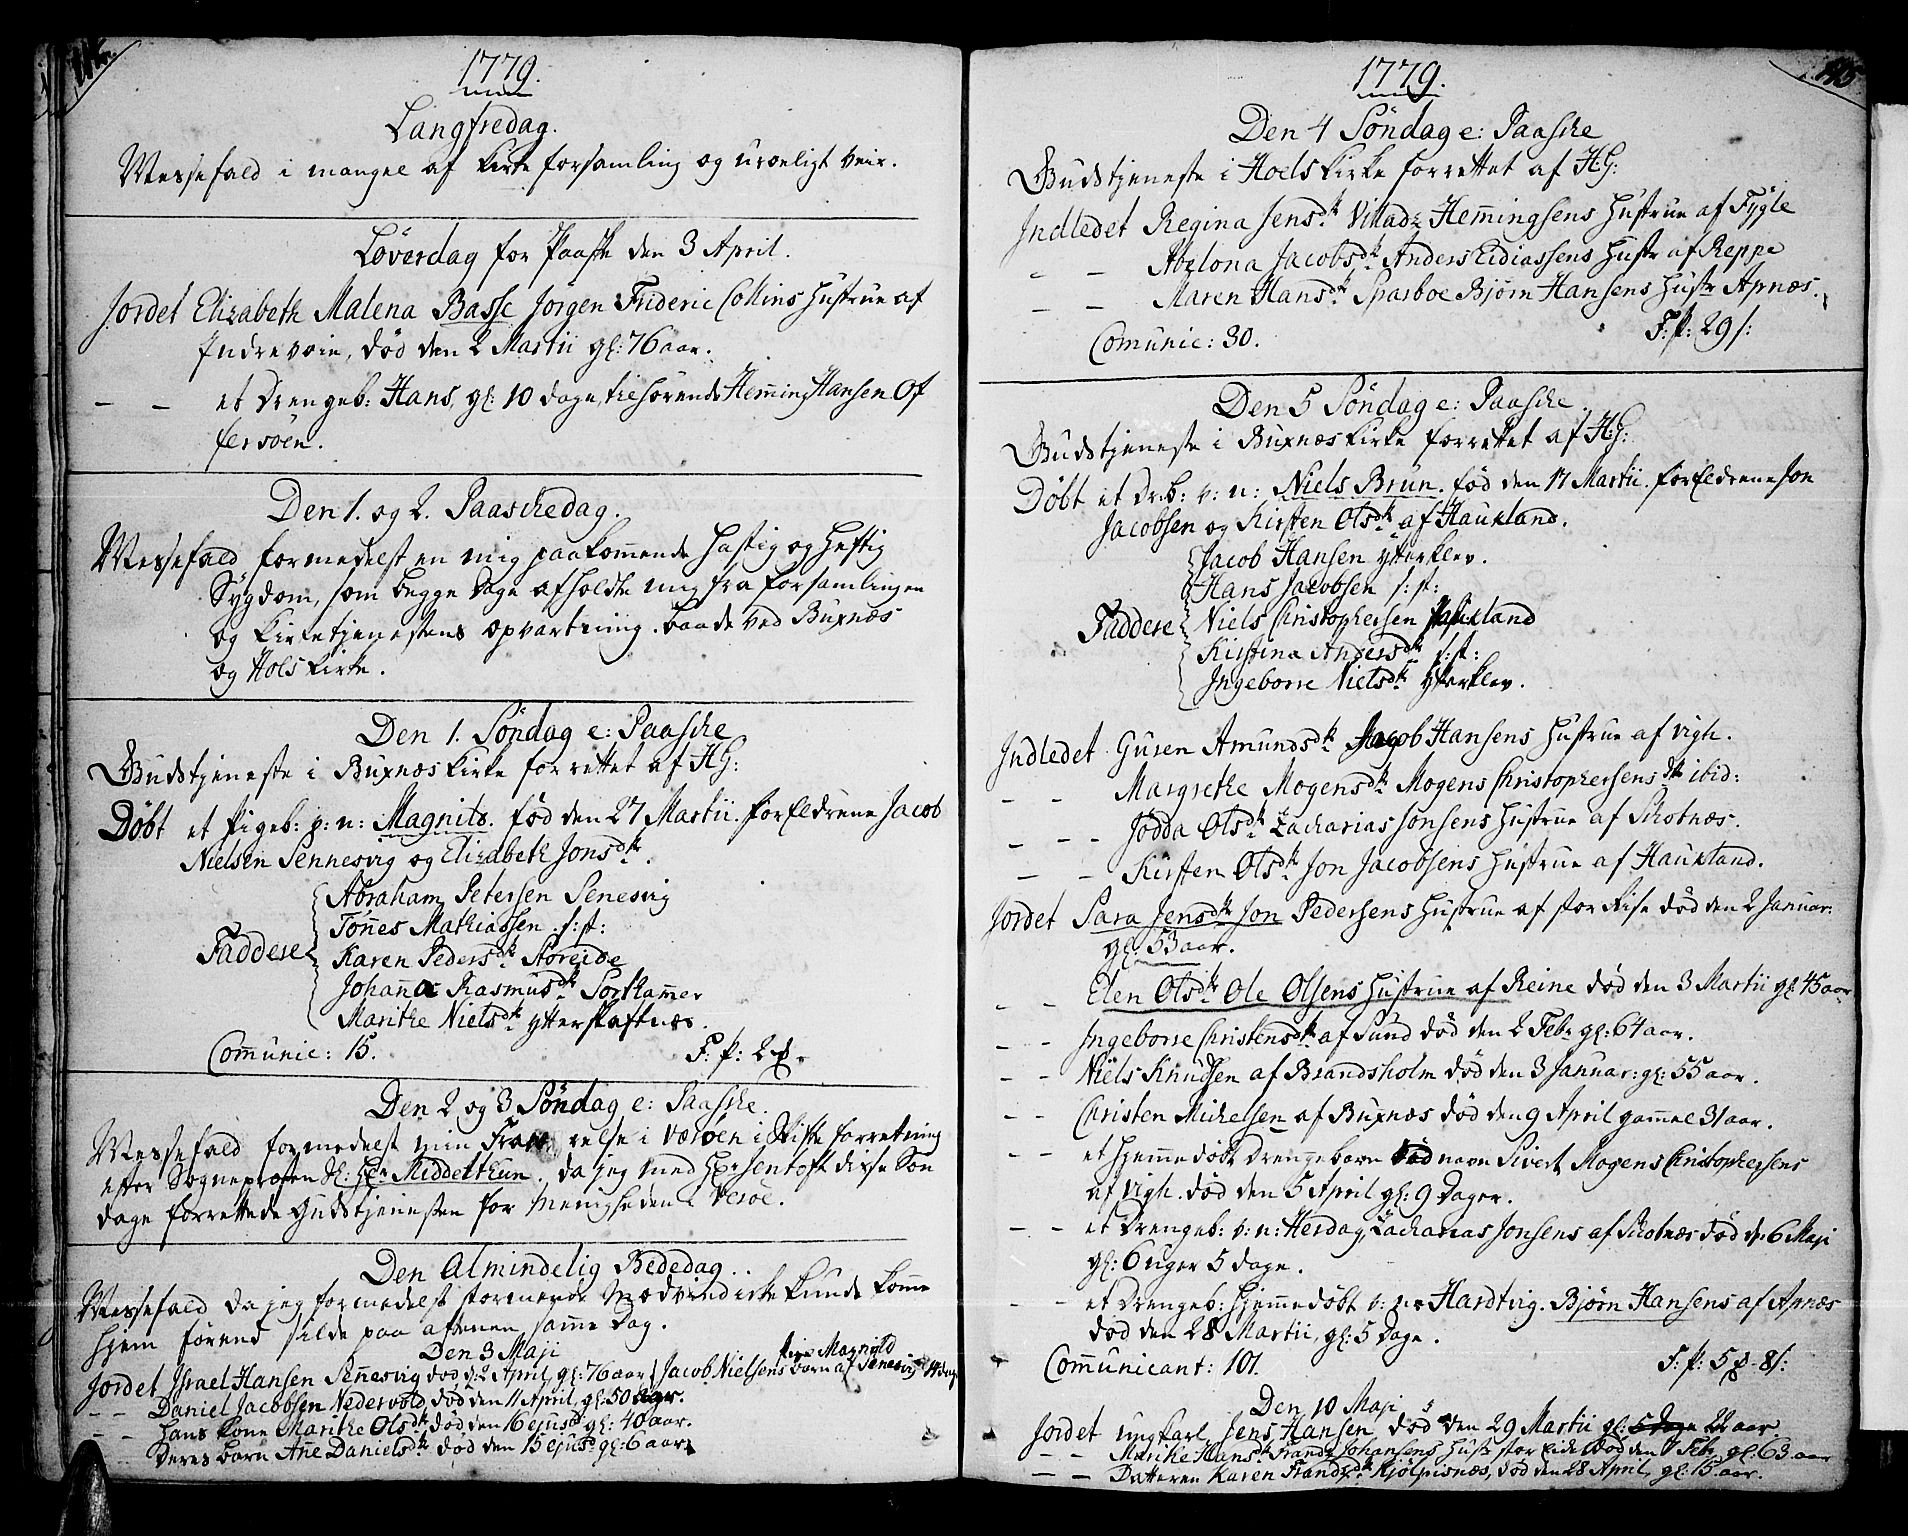 1779.
Langfredag.
Messefald i mangel af Kirke forsamling og uroeligt veir.
Löverdag for Paaske den 3 April.
Jordet Elizabeth Malena Basse Jörgen Frideric Collins Hustrue af
Indrevoie, död den 2 Martii gl: 76 aar.
– – et Drengeb: Hans, gl: 10 dage, tilhörende Hem̄ing Hansen Of
fersöen.
Den 1. og 2. Paaschedag.
Messefald formedelst en mig paakom̄ende hastig og heftig
Sygdom, som begge Dage afholdte mig fra forsamlingen
og Kirketjenestens opvartning baade ved Buxnæs
og Hols Kirke.
Den 1. Söndag e: Paasche
Gudstjeneste i Buxnæs Kirke forrettet af H:G:
Döbt et Pigeb: v: n: Magnild. föd den 27 Martii. forEldrene Jacob
Nielsen Sennesvig og Elizabeth Jonsdtr.
Faddere
Abraham Petersen Senesvig
Tön̄es Mathiassen s: st:
Karen Pedersdtr Storeide
Johan̄a Rasmusdtr Sortkam̄er
Marithe Nielsdtr Ytterskaftnæs.
Com̄unic: 15.
F: p: 2
Den 2 og 3 Söndag e: Paasche.
Messefald formedelst min Fraværelse i Værøen i Skifte forretning
efter Sognepræsten Sl: Hr: Middelthun. da jeg med Hr Jentoft disse Søn
dage forrettede Gudstjenesten for Menigheden i Veröe.
Den Almindelig Bededag.
Messefald da jeg formedelst stormende Modvind icke kunde kom̄e
hjem förend silde paa aftenen sam̄e Dag.
Den 3 Maji
Jordet Israel Hansen Sen̄esvig död d: 2 April, gl: 76 aar Jacob Nielsens pige Magnild barn af Senesvig
– – Daniel Jacobsen Nedervold, död den 11 April, gl: 50 aar.
– – Hans Kone Marithe Olsdtr, död den 16 ejusd gl: 40 aar.
Deres barn An̄e Danielsdtr, död den 15 ejusd gl: 6 aar
1779.
Den 4 Söndag e: Paasche
Gudstjeneste i Hoels Kirke forrettet af H:G:
Indledet Regina Jensdtr Villadz Hem̄ingsens Hustrue af Fygle
– – Abelona Jacobsdtr Anders Eidiassens Hustr af Reppe
– – Maren Hansdtr Sparboe Bjørn Hansens Hustr Apnæs.
Comunic: 30.
F: p: 29 s:
Den 5 Söndag e: Paasche
Gudstjeneste i Buxnæs Kirke forrettet af H:G:
Döbt et Dr:b: v: n: Niels Brun. föd den 17 Martii. forEldrene Jon
Jacobsen og Kirsten Olsdtr af Hauxland.
Faddere
Jacob Hansen Ytterklev.
Hans Jacobsen s: st:
Niels Christophersen Hauxland
Kirstina Andersdtr s: st:
Ingeborre Nielsdtr Ytterklev.
Indledet Guren Amundsdtr Jacob Hansens Hustrue af Vigh.
– – Margrethe Mogensdtr Mogens Christophersens Hr ibid:
– – Jödda Olsdtr Zacharias Jonsens Hustrue af Skotnæs.
– – Kirsten Olsdtr Jon Jacobsens Hustrue af Hauxland.
Jordet Sara Jensdtr Jon Pedersens Hustrue af stor Rise död den 2 Januar:
gl: 53 aar.
– – Elen Olsdtr Ole Olsens Hustrue af Reine död den 3 Martii gl: 45 aar
– – Ingeborre Christensdtr af Sund död den 2 Febr gl: 64 aar.
– – Niels Knudsen af Brandsholm död den 3 Januar: gl: 55 aar.
– – Christen Michelsen af Buxnæs död den 9 April gam̄el 31 aar.
– – et hjem̄edöbt Drengebarn ved navn Sivert Mogens Christophersens
af Vigh. död den 5 April gl: 9 Dager.
– – et Drengeb: v: n: Herdag Zacharias Jonsens af Skotnæs död d: 6 Maji
gl: 6 uger 5 dage.
– – et Drengeb: hjem̄edöbt v: n: Hardtvig. Bjørn Hansens af Apnæs
död den 28 Martii, gl: 5 Dage.
Com̄unicant: 101.
F: p: 5 8 s:
Den 10 Maji
Jordet ungkarl Jens Hansen död den 29 Martii gl: 5 dage 22 aar.
– – Marithe Hansdtr Frandz Johansens Hustr stor Eide död den 7 Feb, gl: 63 aar
– – Datteren Karen Frandzdtr Kjölpisnæs, död den 28 April, gl: 15 aar.